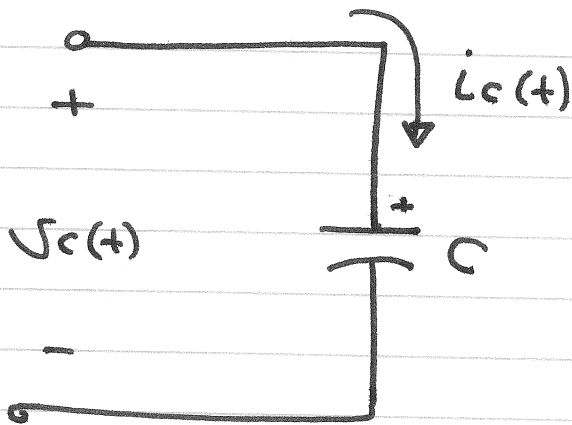 ic(t)
+
+
Vc(t)
C
-